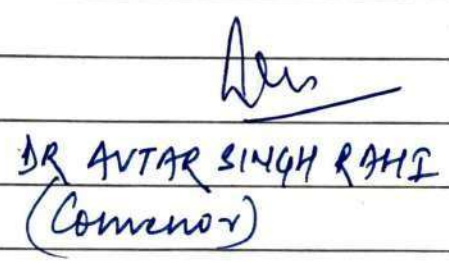 DR AVTAR SINGH RAHI
(Convenor)